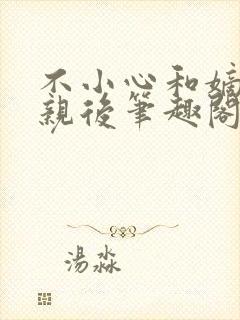 不小心和嫡
親後筆趣閣
湯淼